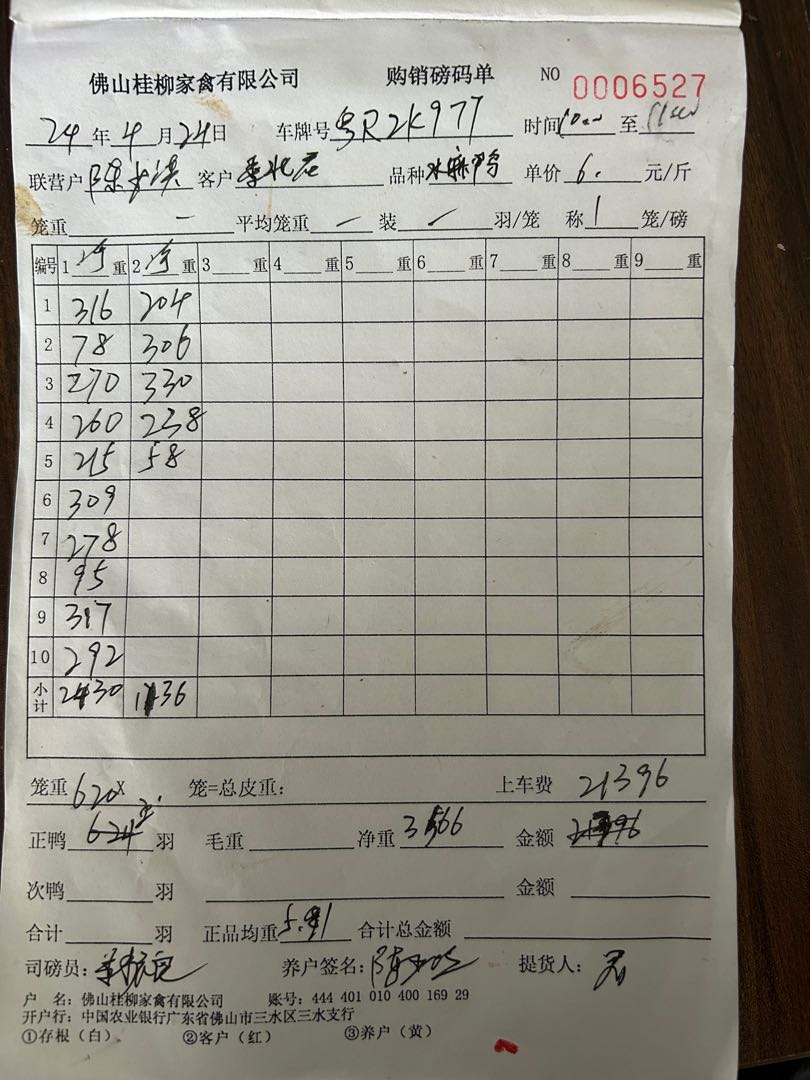 佛山桂柳家禽有限公司 购销磅码单 NO 0006527
24年4月24日 车牌号粤R2K977 时间 至
联营户陈 客户李 品种水麻鸭 单价6.元/斤
笼重一 平均笼重一 装 羽/笼 称1笼/磅
编号 1净重 2净重 3 重 4 重 5 重 6 重 7 重 8 重 9 重
1 316 204
2 78 306
3 270 330
4 260 238
5 215 58
6 309
7 278
8 95
9 317
10 292
小计 2430 1136
笼重620X 笼=总皮重: 上车费 21396
正鸭 羽 毛重 净重3566 金额
次鸭 羽 金额
合计 羽 正品均重 合计总金额
司磅员: 养户签名:陈 提货人:
户 名: 佛山桂柳家禽有限公司 账号: 444 401 010 400 169 29
开户行: 中国农业银行广东省佛山市三水区三水支行
①存根(白) ②客户(红) ③养户(黄)